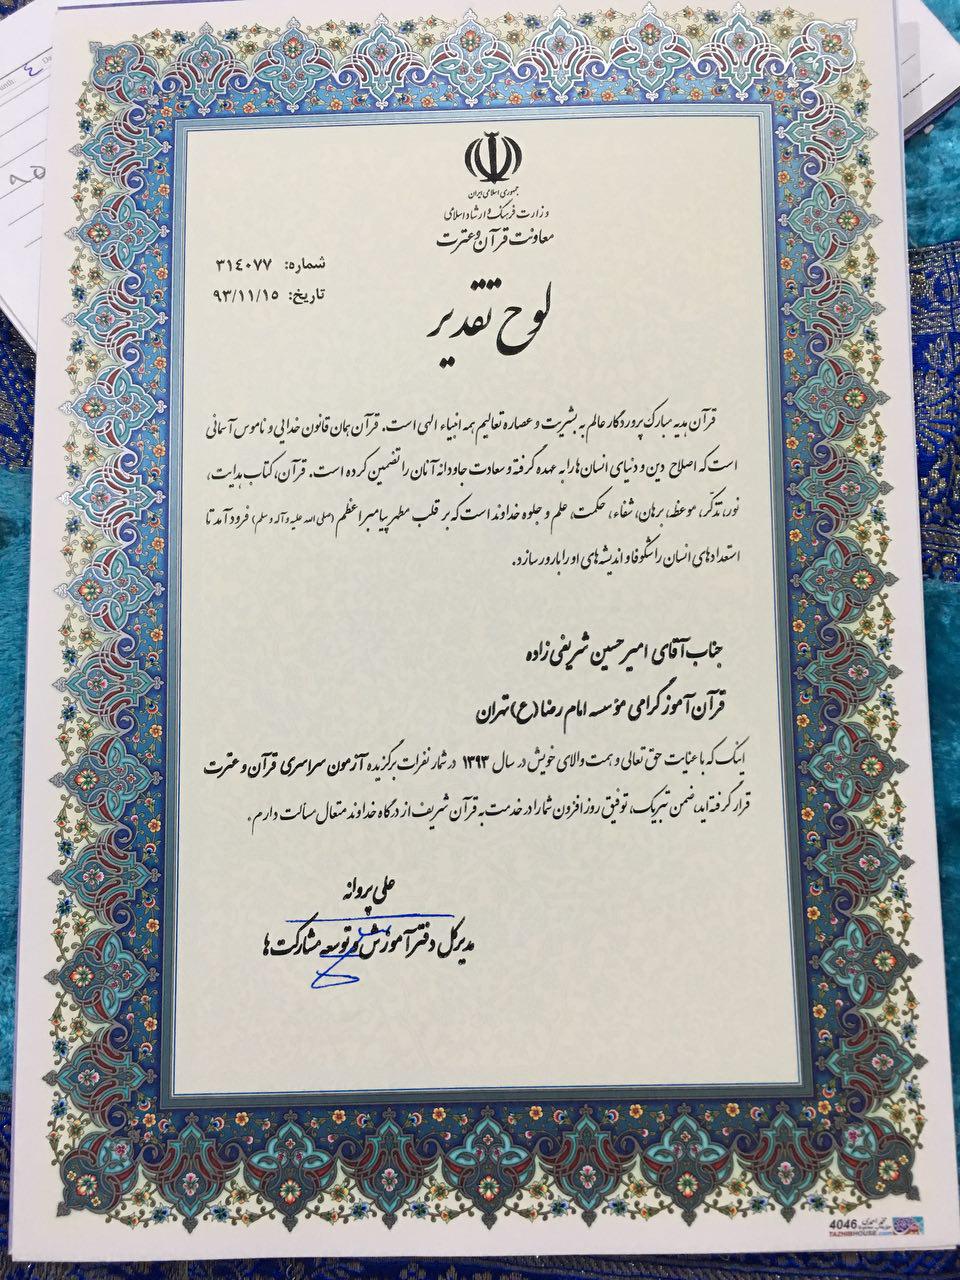 جمهوری اسلامی ایران
وزارت فرهنگ و ارشاد اسلامی
معاونت قرآن و عترت
شماره: ٣١٤٠٧٧
تاریخ: ٩٣/١١/١٥
لوح تقدیر
قرآن هدیه مبارک پروردگار عالم به بشریت و عصاره تعالیم همه انبیاء الهی است. قرآن همان قانون خدایی و ناموس آسمانی
است که اصلاح دین و دنیای انسان ها را به عهده گرفته و سعادت جاودانه آنان را تضمین کرده است. قرآن، کتاب هدایت،
نور، تذکّر، موعظه، برهان، شفاء، حکمت، علم و جلوه خداوند است که بر قلب مطهر پیامبر اعظم (صلی الله علیه و آله و سلم) فرود آمد تا
استعدادهای انسان را شکوفا و اندیشه های او را بارور سازد.
جناب آقای امیرحسین شریفی زاده
قرآن آموز گرامی مؤسسه امام رضا (ع) تهران
اینک که با عنایت حق تعالی و همت والای خویش در سال ۱۳۹۳ در شمار نفرات برگزیده آزمون سراسری قرآن و عترت
قرار گرفته اید، ضمن تبریک، توفیق روزافزون شما را در خدمت به قرآن شریف از درگاه خداوند متعال مسالت دارم.
علی پروانه
مدیرکل دفتر آموزش و توسعه مشارکت ها
4046
TAZHIBHOUSE.com